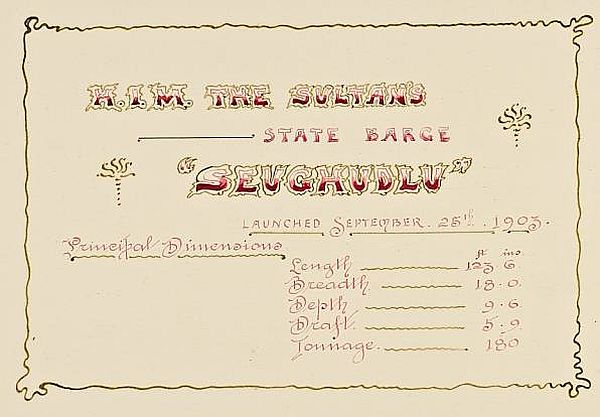 H.I.M. THE SULTAN'S
STATE BARGE
"SEUGHUDLU"
LAUNCHED SEPTEMBER. 25th. 1903.
Principal Dimensions
ft ins
Length 123.6.
Breadth. 18.0.
Depth 9.6.
Draft. 5.9.
Tonnage. 180